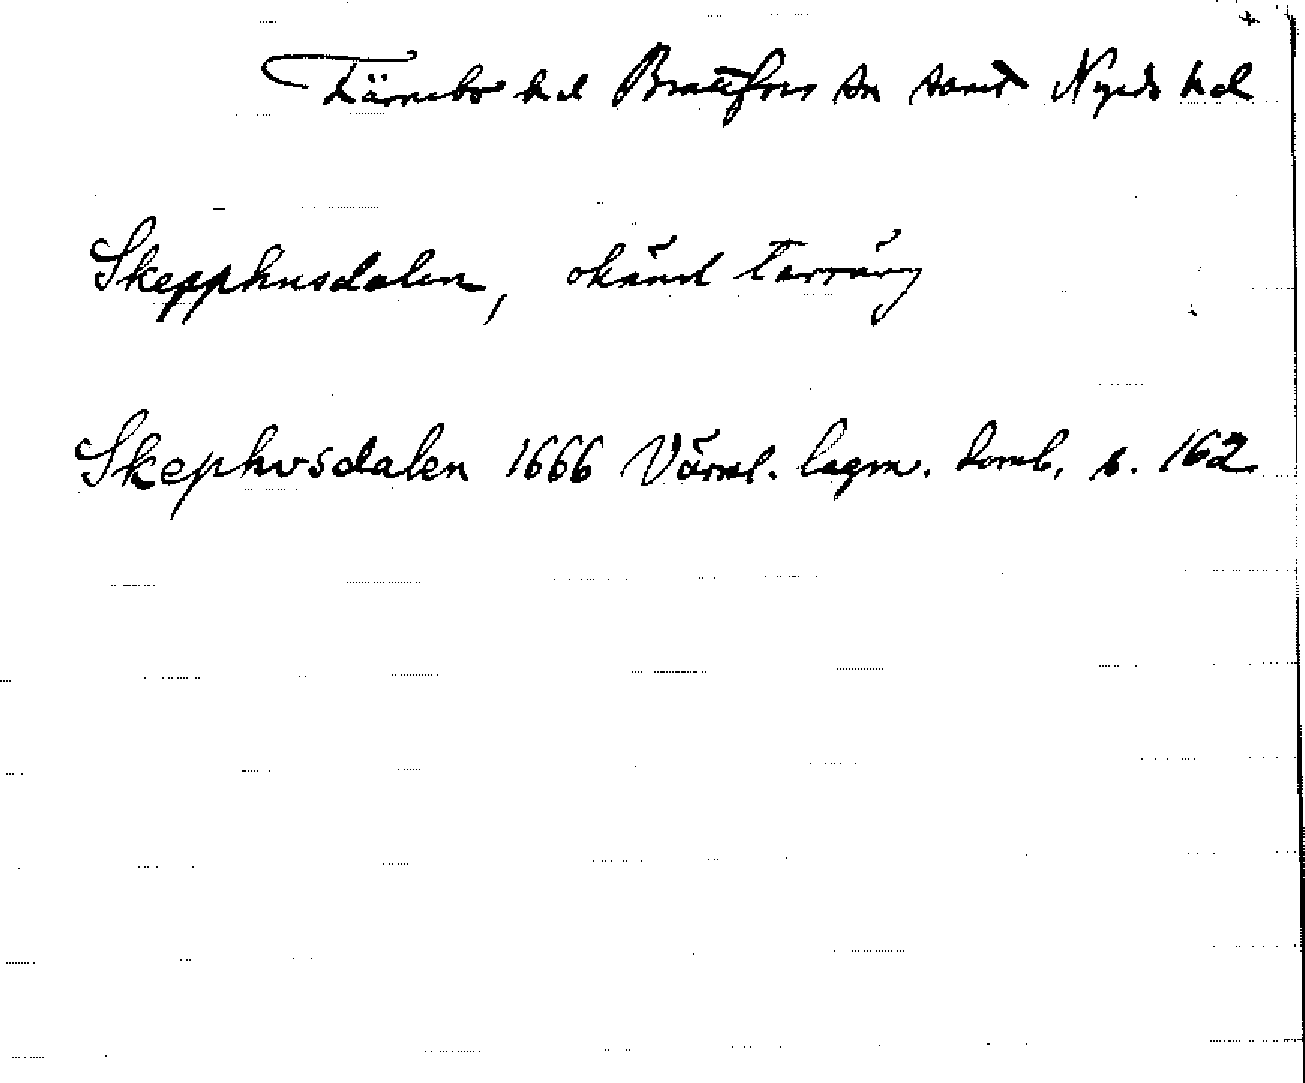 Färnebo hd Brattfors sn samt Nyeds hd
Skepphusdalen, okänd terräng
Skephvsdalen 1666 Värml. lagm. domb. s. 162